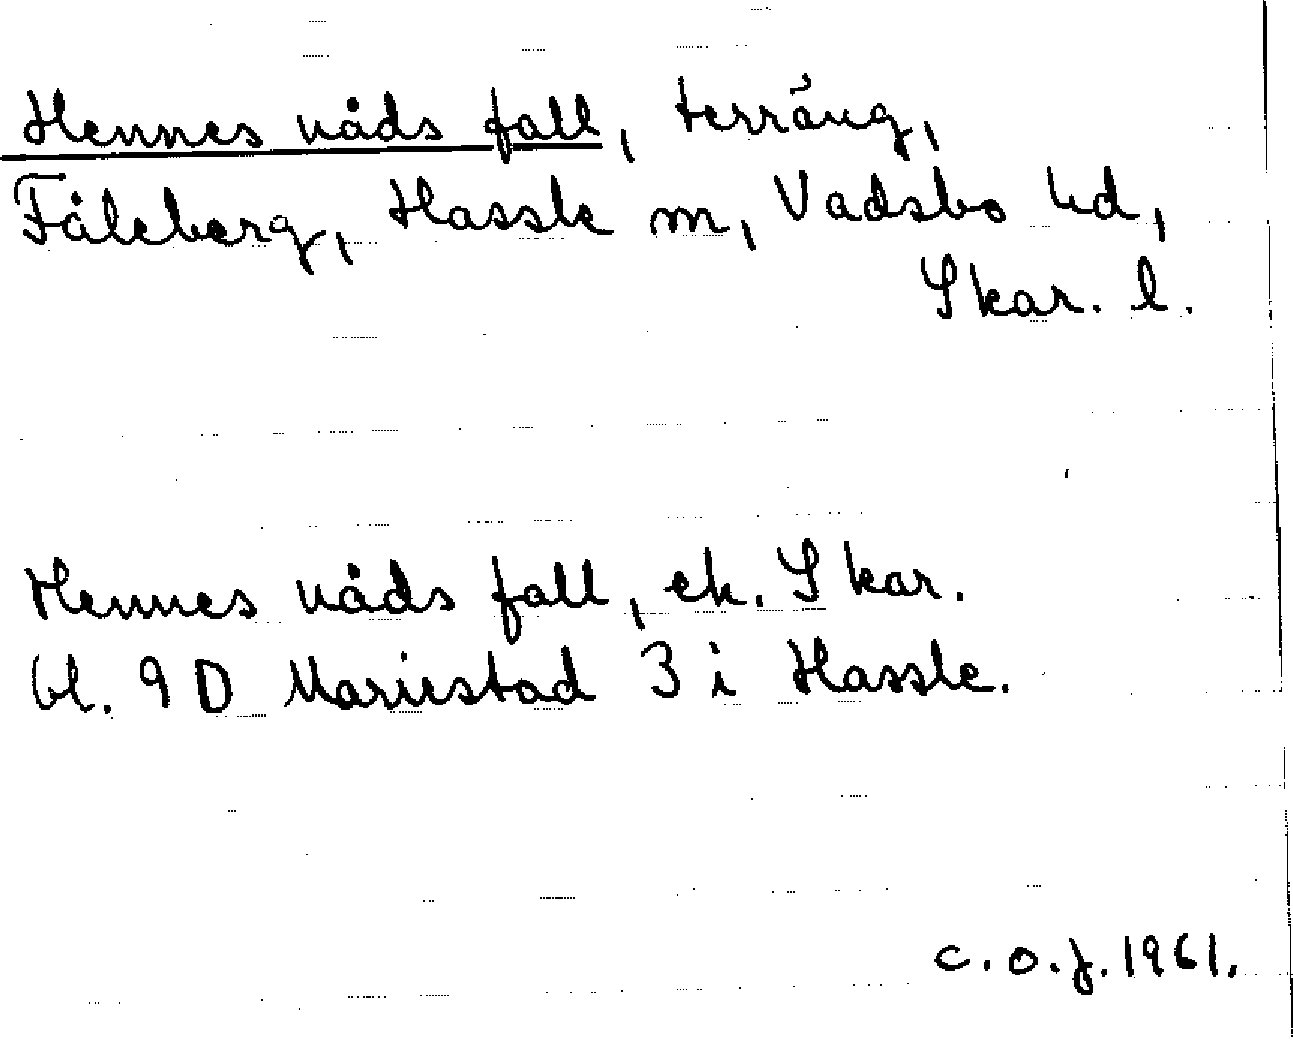 Hennes nåds fall, terräng,
Fåleberg, Hassle sn, Vadsbo hd,
Skar. l.
Hennes nåds fall, ek. Skar.
bl. 9 D Mariestad 3 i Hassle.
C.O.J. 1961.